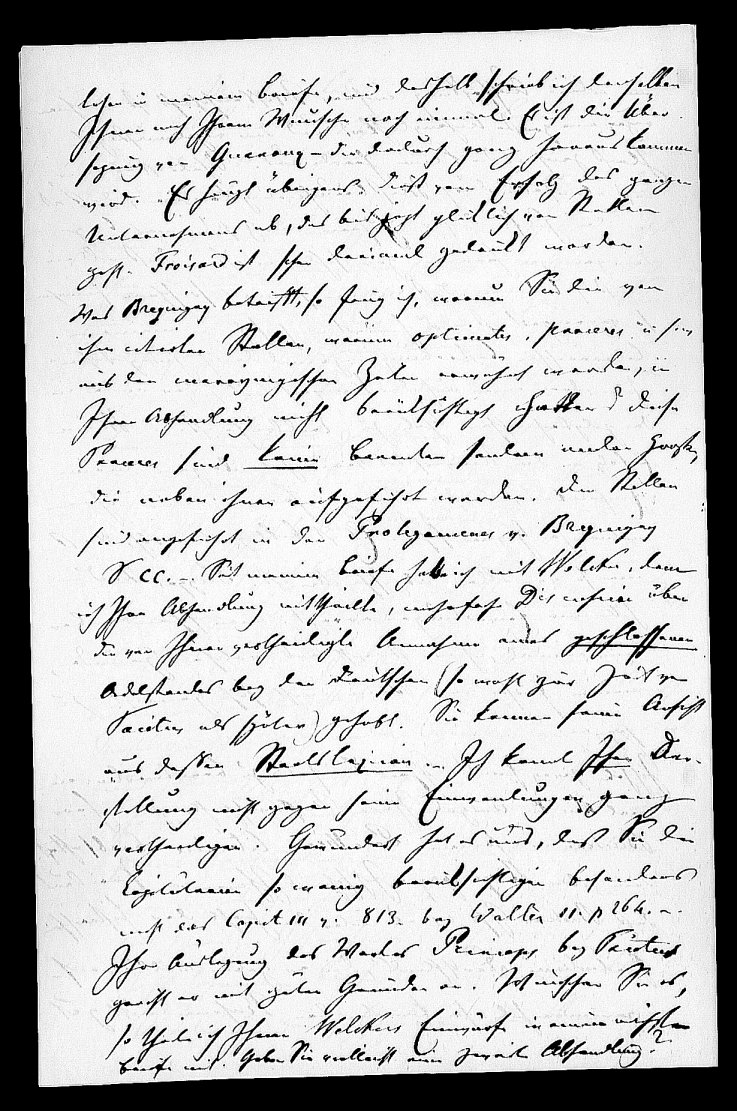 lesen in meinem Briefe, und deshalb schrieb ich denselben
Ihnen nach Ihrem Wunsche noch einmal. Es ist die Über
setzung von Guerard – die dadurch ganz heraus kommen
wird. Es hängt übrigens dieß vom Erfolg des ganzen
Unternehmens ab, das bis jetzt glücklich von Statten
geht. Froissard ist schon dreimal gedruckt worden.
Was Brequigny betrifft, so frug ich, warum Sie die von
ihm citirten Stellen, worin optimates, proceres in
aus den merovingischen Zeiten erwähnt werden, in
Ihrer Abhandlung nicht berücksichtigt hatten? diese
Proceres sind keine Beamten sondern andere
die neben ihnen aufgeführt werden. Die Stellen
sind angeführt in den Prolegomenes v. Brequigny
CC. – Seit meinem Briefe hatte ich mit Welcker, dem
ich Ihre Abhandlung mittheilte, mehrfache Discussion über
die von Ihnen vertheidigte Annahme eines geschlossenen
Adelstandes bey den Deutschen (so wohl zur Zeit von
Tacitus als später) gehabt. Sie kennen seine Ansicht
aus dessen Staatslexicon. – Ich kannte Ihre Dar-
stellung nicht gegen seine Einwendungen ganz
vertheidigen. Gewundert hat es uns, daß Sie die
Capitularien so wenig berücksichtigen besonders
nicht das Capit III v. 813. bey Walter II. p 264. –
Ihre Auslegung des Wortes Princeps bey Tacitus
greift er mit guten Gründen an. Wünschen Sie es,
so theile ich Ihnen Welckers Einwürfe in einem nächsten
Briefe mit. Geben Sie vielleicht eine zweite Abhandlung?